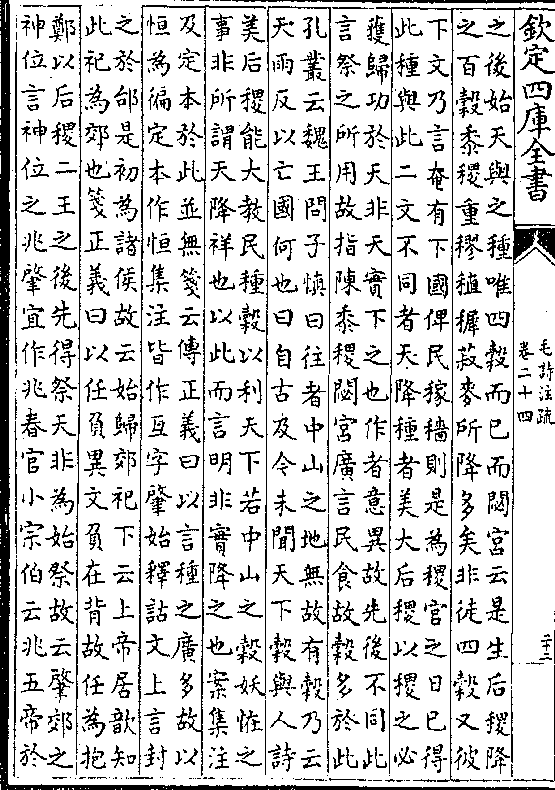 欽定四庫全書
毛詩注疏
卷二十四
之後始天與之種唯四穀而已而閟宮云是生后稷降
之百穀黍稷重穋稙穉菽麥所降多矣非徒四穀又彼
下文乃言奄有下國俾民稼穡則是為稷官之日已得
此種與此二文不同者天降種者美大后稷以稷之必
獲歸功於天非天實下之也作者意異故先後不同此
言祭之所用故指陳黍稷閟宮廣言民食故穀多於此
孔叢云魏王問子慎曰往者中山之地無故有穀乃云
天雨反以亡國何也曰自古及今未聞天下穀與人詩
美后稷能大教民種穀以利天下若中山之穀妖恠之
事非所謂天降祥也以此而言明非實降之也案集注
及定本於此並無箋云傳正義曰以言種之廣多故以
恒為徧定本作恒集注皆作亙字肇始釋詁文上言封
之於邰是初為諸侯故云始歸郊祀下云上帝居歆知
此祀為郊也箋正義曰以任負異文負在背故任為抱
鄭以后稷二王之後先得祭天非為始祭故云肇郊之
神位言神位之兆肇宜作兆春官小宗伯云兆五帝於